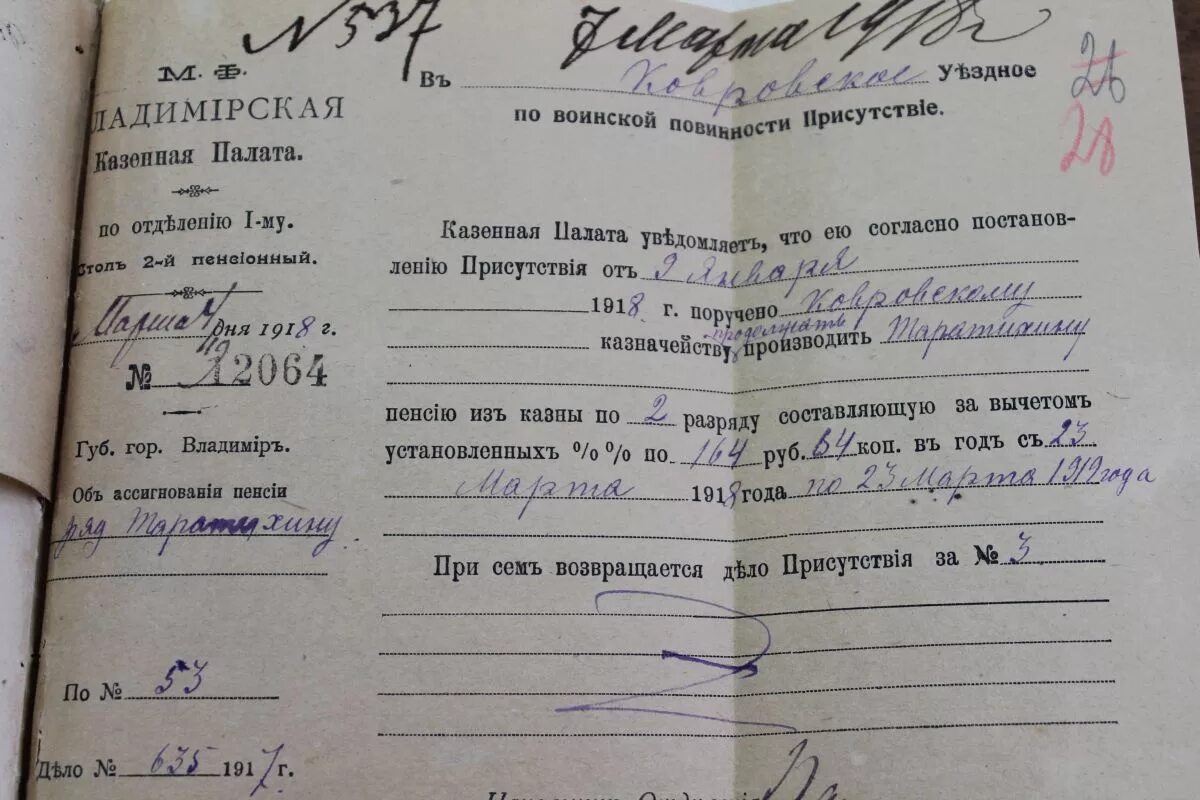 N 537
7 Марта 1918 г
26
28
М. Ф.
ЛАДИМІРСКАЯ
Казенная Палата.
по отдѣленію I-му.
Столъ 2-й пенсіонный.
Марта дня 1918 г.
№ 12064
Губ. гор. Владиміръ.
Объ ассигнованіи пенсіи
ряд Таратихину
По № 53
Дѣло № 635 1917 г.
Въ Ковровское Уѣздное
по воинской повинности Присутствіе.
Казенная Палата увѣдомляетъ, что ею согласно постанов-
ленію Присутствія отъ 9 Января
1918 г. поручено Ковровскому
продолжать
казначейству производить Таратихину
пенсію изъ казны по 2 разряду составляющую за вычетомъ
установленныхъ %% по 164 руб. 64 коп. въ годъ съ 23
Марта 1918 года по 23 Марта 1919 года
При семъ возвращается дѣло Присутствія за № 3